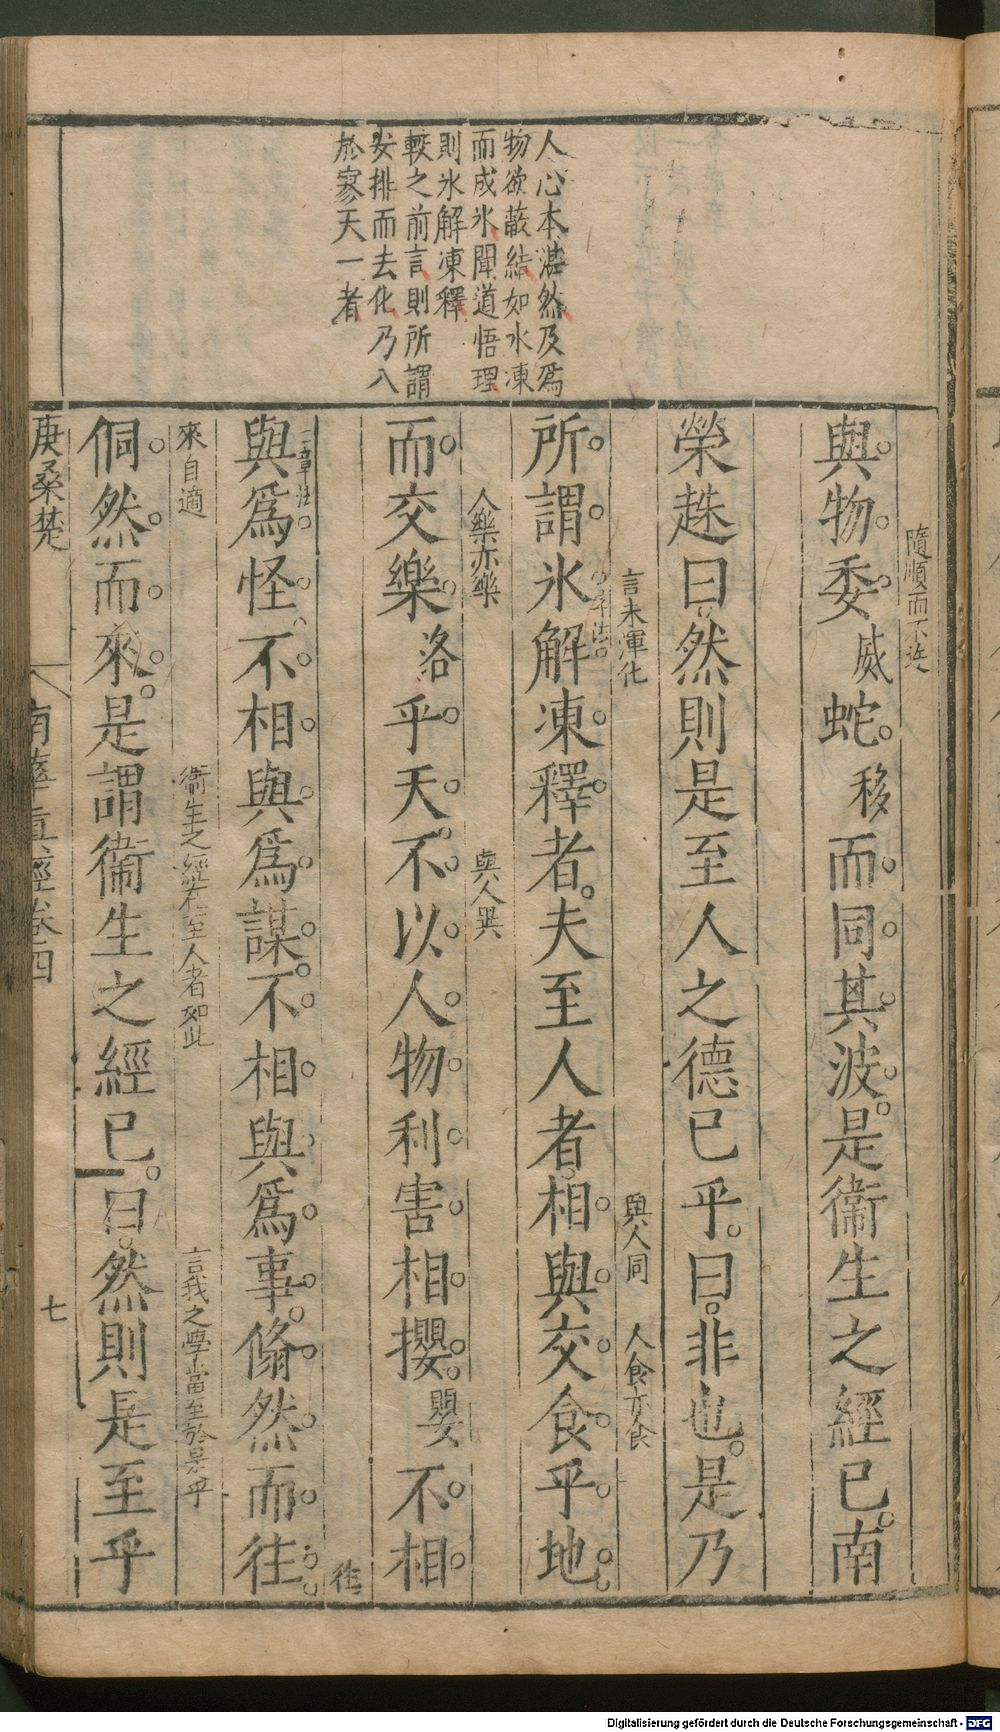 人心本湛然及爲
物欲蔽結如水凍
而成氷聞道悟理
則氷解凍釋
較之前言則所謂
安排而去化乃入
於寥天一者
隨順而不迕
與物委威蛇移而同其波是衞生之經已南
榮趎曰然則是至人之德已乎曰非也是乃
言未渾化
與人同
人食亦食
所謂氷解凍釋者夫至人者相與交食乎地
人樂亦樂
與人異
而交樂洛乎天不以人物利害相攖嬰不相
徃
與爲怪不相與爲謀不相與爲事翛然而往
來自適
衞生之經在至人者如此
言我之學當至於是乎
侗然而來是謂衞生之經已曰然則是至乎
庚桑楚
南華眞經卷四
七
Digitalisierung gefördert durch die Deutsche Forschungsgemeinschaft - DFG